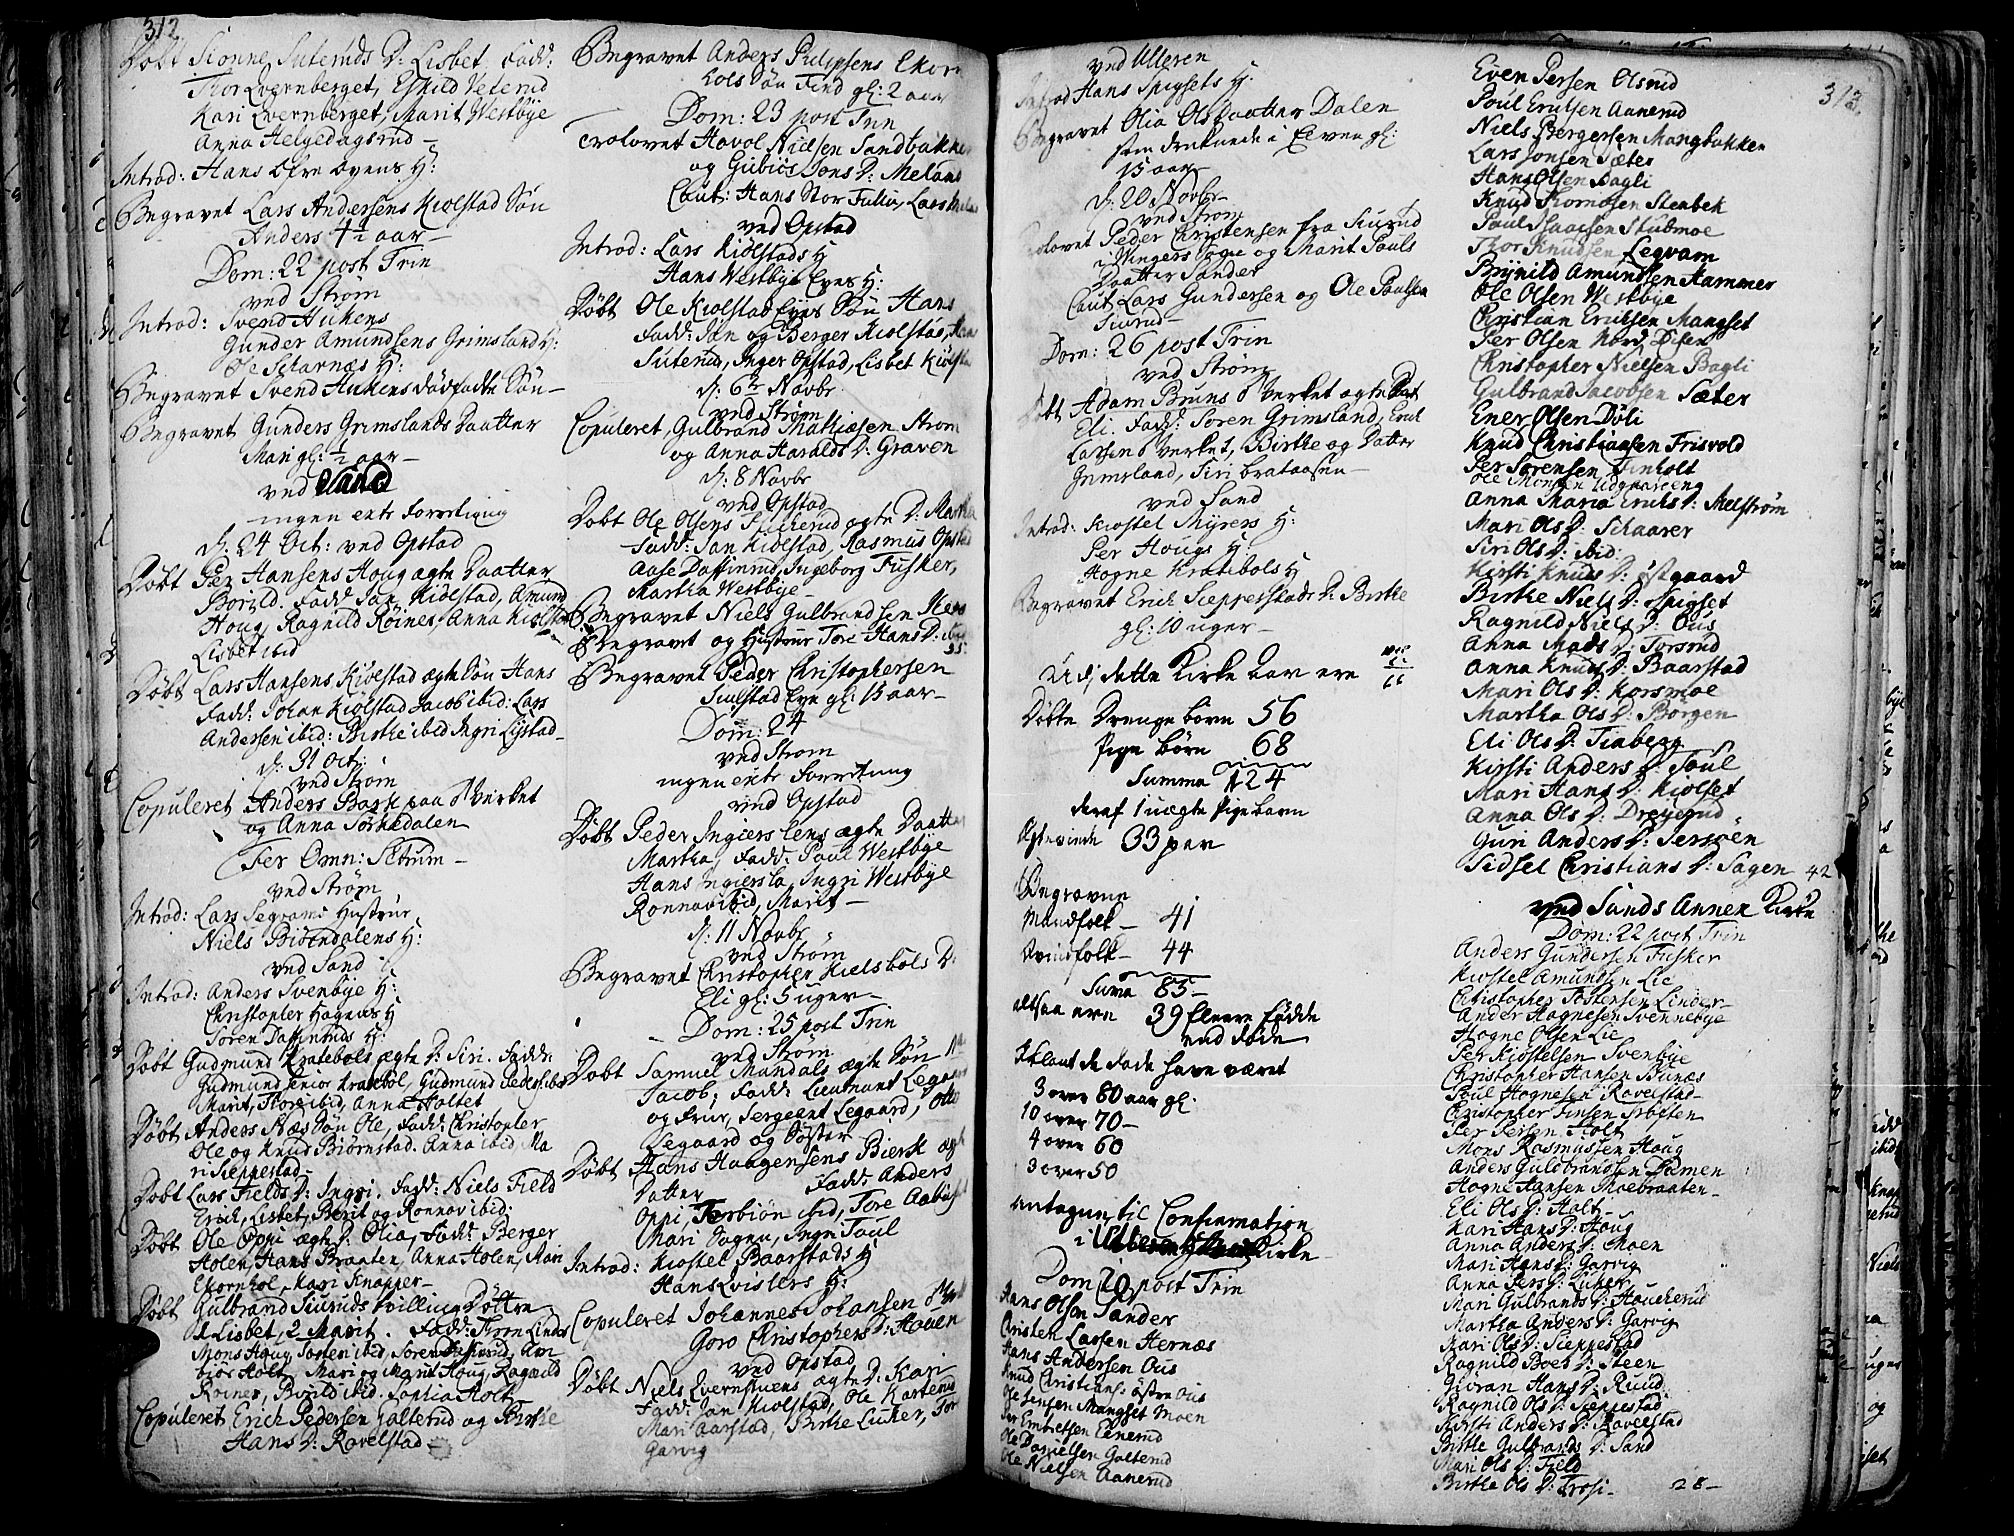 312
Døbt Sionne Suteruds D: Lisbet. Fadd:
Thor Qvernberget, Eskild Veterud
Kari Qvernberget, Marit Westbye
Anna Helgedagsrud
Introd: Hans Øfre Byens H:
Begravet Lars Andersens Kiølstad Søn
Anders 4½ aar
Dom: 22 post Trin
ved Strøm
Introd: Svend Aukens
Gunder Amundsens Grimsland H:
Ole Scharnæs H:
Begravet Svend Aukens dødfødte Søn
Begravet Gunders Grimslands Daatter
Mari gl: ½ aar
ved Sand
ingen ente Forretning
d: 24 Oct: ved Opstad
Døbt Per Hansens Houg ægte Daatter
Borild. Fadd: Jan Kiølstad, Amund
Houg, Ragnild Roines, Anna Kiølstad
Lisbet ibid
Døbt Lars Hansens Kiølstad ægte Søn Hans
Fadd: Johan Kiølstad Jacob ibid: Lars
Andersen ibid: Birthe ibid Ingri Lystad
d: 31 Oct:
ved Strøm
Copuleret Anders Bark paa Verket
og Anna Sørkedalen
Fer Omn: Sctrum
ved Strøm
Introd: Lars Segrams Hustrue
Niels Biørndalens H:
ved Sand
Introd: Anders Svenbye H:
Christopher Hagens H
Søren Daffinruds H:
Døbt Gudmund Kratebøls ægte D: Siri. Fadd:
Gudmund senior Kratebøl, Gudmund Peders ibid
Marit, Thore ibid, Anna Holtet
Døbt Anders Næs Søn Ole, Fadd: Christopher
Ole og Knud Biørnstad. Anna ibid, Ma
ri Sæppestad
Døbt Lars Fields D: Ingri. Fadd: Niels Field
Erich, Lisbet, Berit og Ronnov ibid:
Døbt Ole Oppi ægte D: Olia, Fadd: Berger
Holen, Hans Braaten, Anna Holen, Mari
Ekornhol, Mari Knapper
Døbt Gulbrand Siuruds tvilling Døttre
1 Lisbet, 2 Marit. Fadd: Thron Linder
Mons Houg, Torsten ibid, Søren Daffinrud, Am
biør Holt, Mari og Marit Houg, Ragnild
Roines, Borild ibid. Sophia Holt
Copuleret Erich Pedersen Galterud og Birthe
Hans D: Ravelstad
Begravet Anders Philipsens Ekorn
hols Søn Find gl: 2 aar
Dom: 23 post Trin
Trolovet Havol Nielsen Sandbakken
og Gubiør Jons D: Meland
Caut: Hans Stor Fulu, Lars
ved Opstad
Introd: Lars Kiølstads H
Hans Westbye Eyes H:
Døbt Ole Kiølstad Eyes Søn Hans
Fadd: Jan og Berger Kiølstad,
Suterud, Inger Opstad, Lisbet Kiølstad
d: 6te Novbr
ved Strøm
Copuleret, Gulbrand Mathiæsen Strøm
og Anna Haralds D: Graven
d: 8 Novbr
ved Opstad
Døbt Ole Olsens Fuskerud ægte D: Martha
Fadd: Jan Kiølstad, Rasmus Opstad
Aase Daffinrud, Ingeborg Fusker,
Martha Westbye
Begravet Niels Gulbrandsen
Begravet og Hustrue Tore Hans D: ibid
Begravet Peder Christophersen
Siulstad Eye gl: 15 aar
Dom: 24
ved Strøm
ingen ente Forretning
ved Opstad
Døbt Peder Ingierslens ægte Daatter
Martha, Fadd: Paul Westbye
Hans Ingiersla, Ingri Westbye
Ronnov ibid, Marit
d: 11 Novbr
ved Strøm
Begravet Christopher Kielsbøls D:
Eli gl: 5 uger
Dom: 25 post Trin
ved Strøm
Døbt Samuel Mandals ægte Søn
Jacob, Fadd: Lieutnant Legaard
og Frue, Sergeent Legaard, Otto
Legaard og Søster
Døbt Hans Haagensens Bierk ægte
Datter Fadd: Anders
Oppi, Torbiøn ibid, Tore Aabøgel
Mari Sagen, Ingri Taul
Introd: Kiøstel Baarstads H
Hans Qvislers H:
Copuleret Johannes Johansen
Goro Christophers D: Hoven
ved Opstad
Døbt Niels Qvernstuens ægte D: Kari
Fadd: Jan Kiølstad, Ole Kasterud
Mari Aarstad, Birthe Lucker, Tor
Garvig
ved Ulleren
Introd Hans Spigsets H:
Begravet Olia Olsdaatter Dalen
som druknede i Elven gl:
15 aar
d: 20 Novbr
ved Strøm
Trolovet Peder Christensen fra Siurud
i Wingers Sogn og Marit Pauls
Daatter Sander
Caut Lars Gundersen og Ole Paulsen
Siurud
Dom: 26 post Trin
ved Strøm
Døbt Adam Bruns Verket ægte Dat
Eli. Fadd: Soren Grimsland, Erich
Larsen Verket, Birthe og Datter
Grimsland, Siri brataasen
ved Sand
Introd: Kiøstel Myrers H:
Per Hougs H
Hogne Kratebøls H
Begravet Erich Sæpperstads D: Birthe
gl: 10 uger
Udi dette Kirke Aar ere
Døbte Drenge børn 56
Pige børn 68
Summa 124
deraf 1 uægte Pigebarn
Ægteviede 33 par
Begravne
Mandfolk 41
Qvindfolk 44
Suma 85
altsaa ere 39 fleere fødde
end døde
Iblant de døde have været
3 over 80 aar gl:
10 over 70
4 over 60
3 over 50
antagne til Confirmation
i Kirke
Dom 20 post Trin
Hans Olsen Sander
Christen Larsen Hernæs
Hans Andersen Ous
Knud Christians: østre Ous
Ole Jensen Mangset Moen
Per Embretsen Eenerud
Ole Danielsen Galterud
Ole Nielsen Aanerud
313
Even Persen Olsrud
Poul Erichsen Aanerud
Niels Bergersen Mangbakken
Lars Jonsen Sæter
Hans Olsen Bagli
Knud Thomæsen Stenbek
Paul Isaachsen Stubmoe
Thor Knudsen Legvam
Brynild Amundsen Hammer
Ole Olsen Westbye
Christian Erichsen Mangset
Per Olsen Nord Disen
Christopher Nielsen Bagli
Gulbrand Jacobsen Sæter
Ener Olsen Døli
Knud Christiansen Frisvold
Per Sørensen Finholt
Ole Monsen Udgaareeng
Anna Maria Erichs D: Melstrøm
Mari Ols D: Schaarer
Siri Ols D: ibid:
Kirsti Knuds D: Østgaard
Birthe Niels D: Spigset
Ragnild Niels D: Ous
Anna Mads D: Torsrud
Anna Knuds D: Baarstad
Mari Ols D: Korsmoe
Martha Ols D: Børgen
Eli Ols D: Tiaberg
Kirsti Anders D: Toul
Mari Hans D: Kiølset
Anna Ols D: Dreyerud
Guri Anders D: Jersøen
Sidsel Christians D: Sagen 42
ved Sands Annex Kirke
Dom: 22 post Trin
Anders Gundersen Fusker
Kiøstel Amundsen Lie
Christopher Tostensen Linder
Ander Hagnesen Svennebye
Hogne Olsen Lie
Per Kiøstelsen Svenbye
Christopher Hansen Bunæs
Poul Hognesen Ravelstad
Christopher Jensen Trøften
Per Persen Holt
Mons Rasmussen Houg
Anders Guldbrandsen Ramen
Hogne Hansen Moebraaten
Eli Ols D: Holt
Kari Hans D: Houg
Anna Anders D: Moen
Mari Hans D: Garvig
Anna Pers D: Luker
Mari Gulbrands D: Houckerud
Martha Anders D: Garvig
Mari Ols D: Sieppestad
Ragnild Boes D: Steen
Giøran Hans D: Ruud
Ragnild Ols D: Sieppestad
Kirsti Anders D: Ravelstad
Birthe Gulbrands D: Sand
Mari Ols D: Field
Birthe Ols D: Frøsi 28